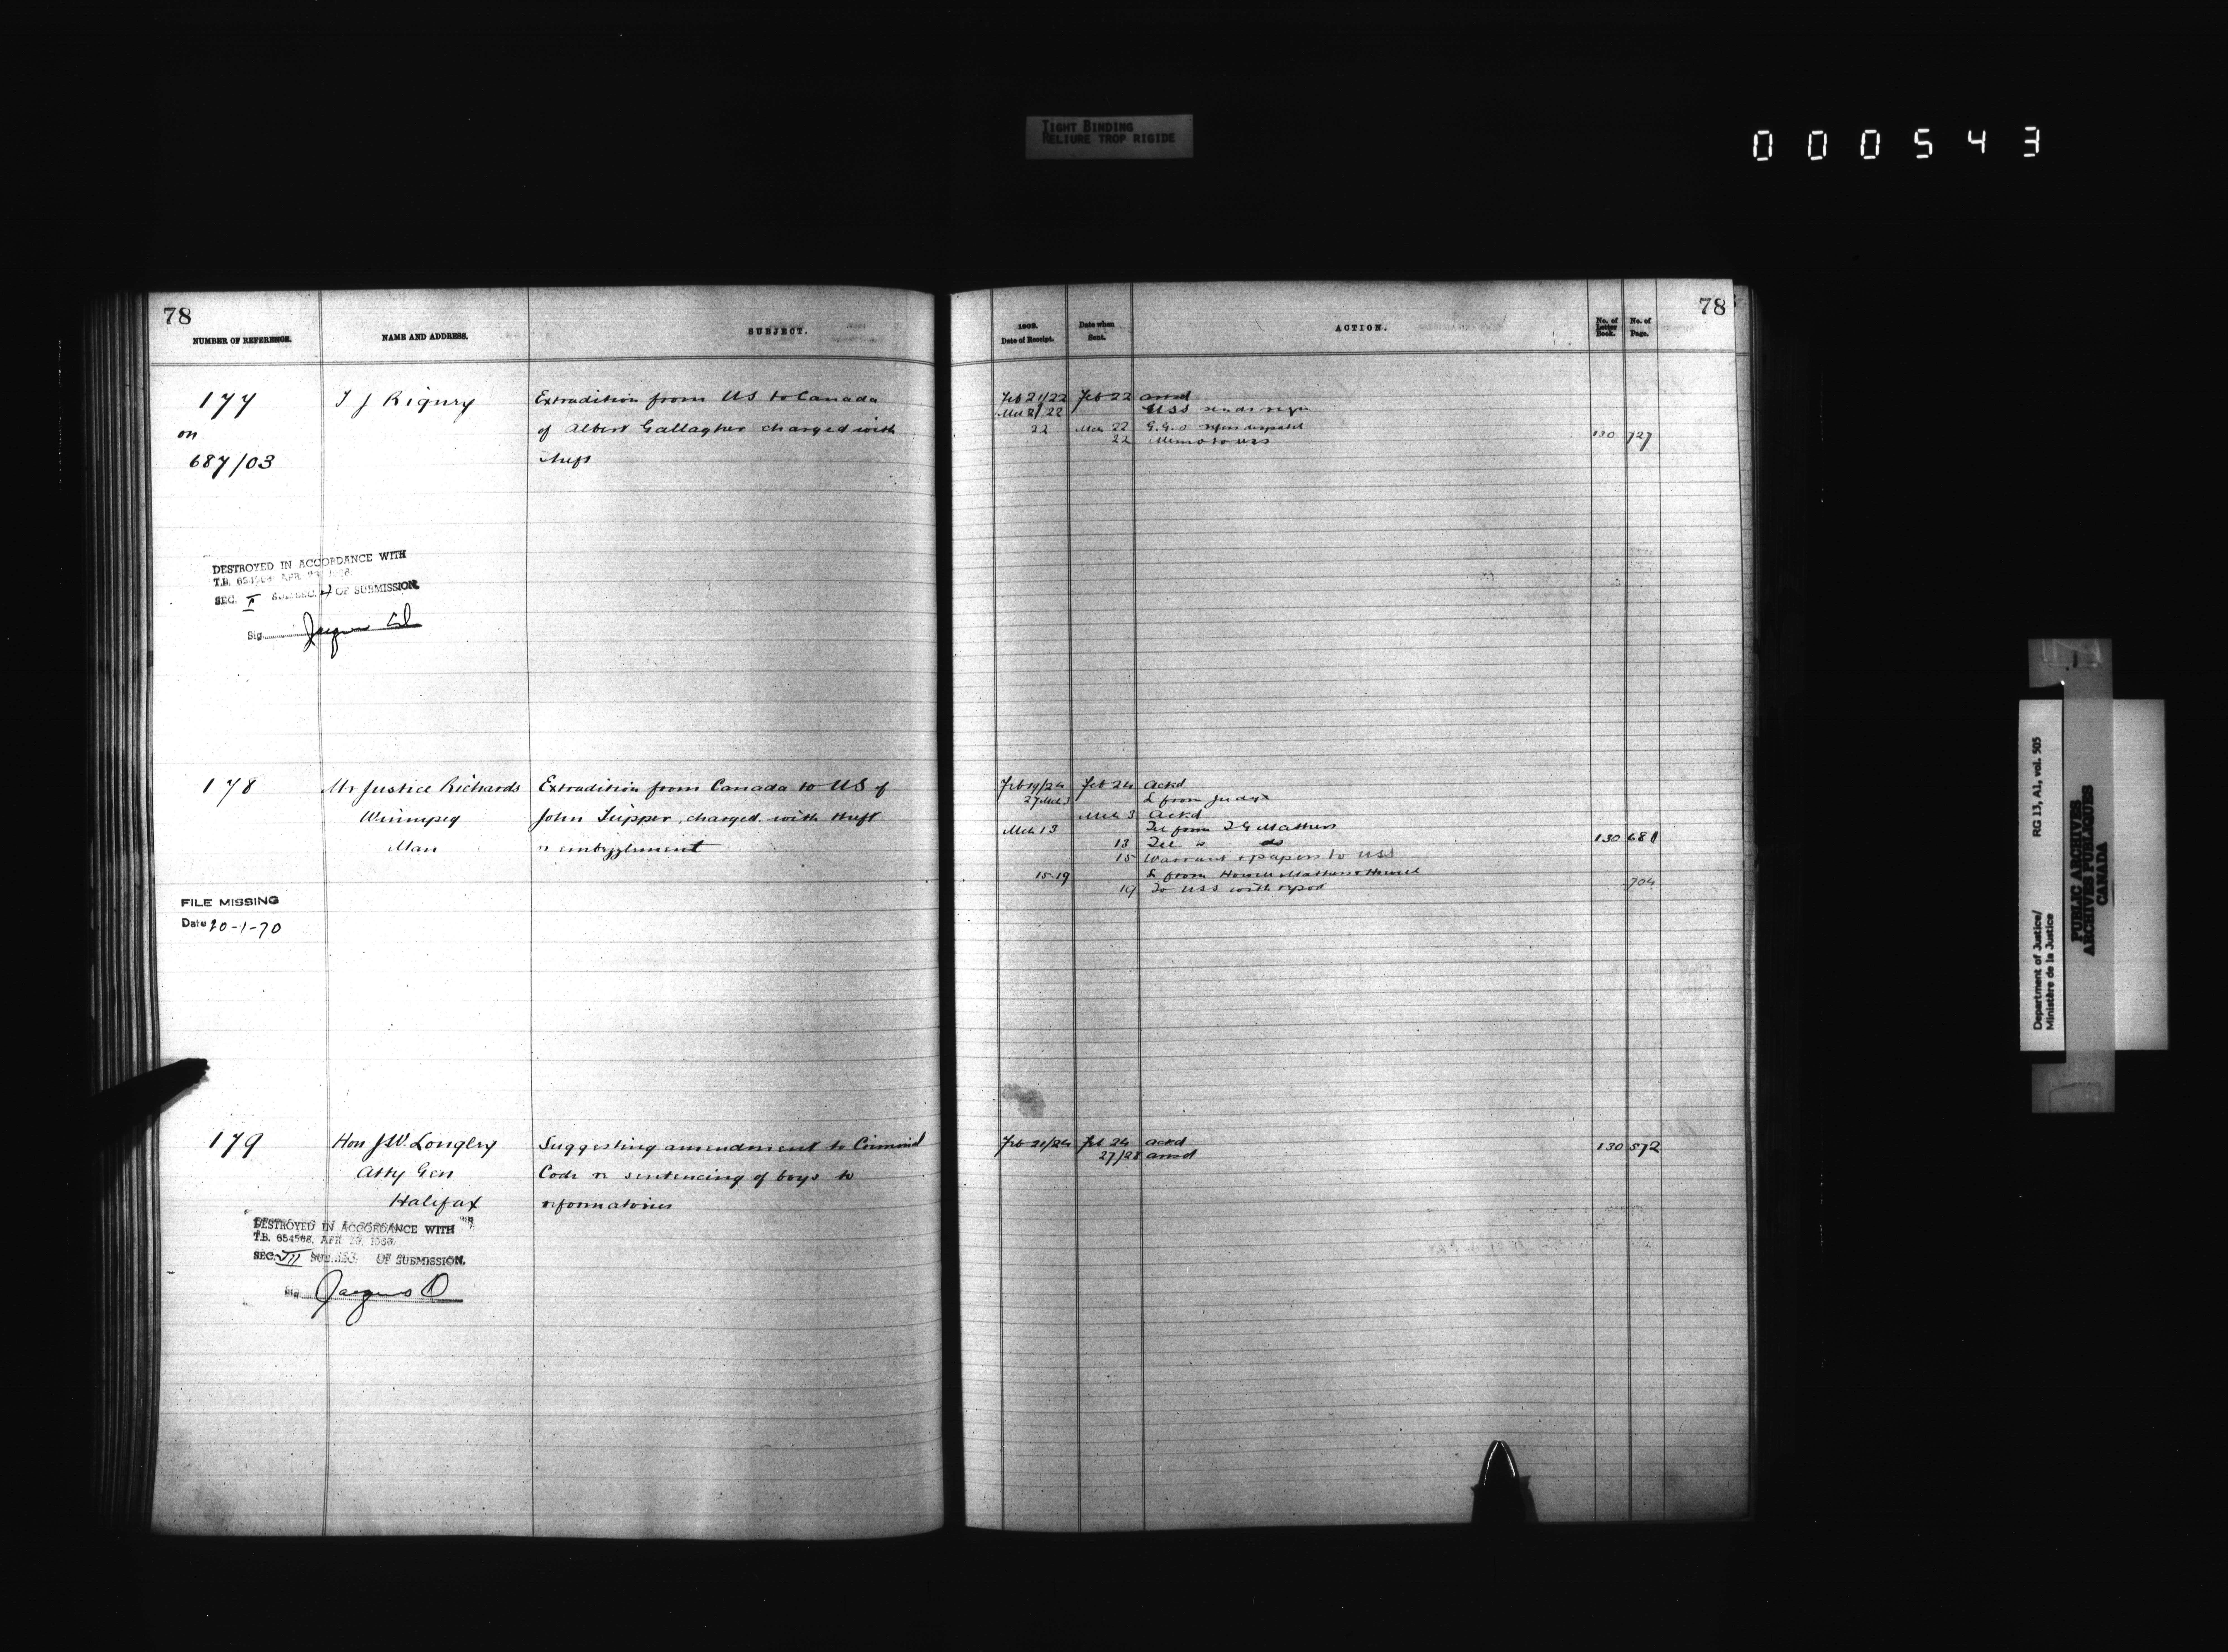 TIGHT BINDING
RELIURE TROP RIGIDE
000543
78
NUMBER OF REFERENCE.
NAME AND ADDRESS.
SUBJECT.
177
on
687/03
T J Rigney
Extradition from US to Canada
of Albert Gallagher charged with
theft
DESTROYED IN ACCORDANCE WITH
T.B. 654568 APR.
SEC. I SUB.SEC. OF SUBMISSION.
Sig
178
Mr Justice Richards
Winnipeg
Man
Extradition from Canada to US of
John Tupper, charged with theft
r embezzlement
FILE MISSING
Date 20-1-70
179
Hon J.W. Longley
Atty Gen
Halifax
Suggesting amendment to Criminal
Code re sentencing of boys to
reformatories
DESTROYED IN ACCORDANCE WITH
T.B. 654568, APR
SEC. VII SUB.SEC. OF SUBMISSION.
Sig
78
1903.
Date of Receipt.
Date when
Sent.
ACTION.
No. of
Letter
Book.
No. of
Page.
Feb 21/22 Feb 22 ansd
Mch 21/22 USS sends
22 Mch 22 G.G.
22 Memo to USS 130 727
Feb 19/24 Feb 24 Ackd
27 Mch 3 L from Judge
Mch 3 Ackd
Mch 13 Tel from T G Mathers
13 Tel " do 130 681
15 Warrant & papers to USS
15-19 L from Howell Mathers & Howell
19 To USS with report 704
Feb 21/24 Feb 24 ackd 130 572
27/28 ansd
Department of Justice/
Ministère de la Justice
RG 13, A1, vol. 505
PUBLIC ARCHIVES
ARCHIVES PUBLIQUES
CANADA